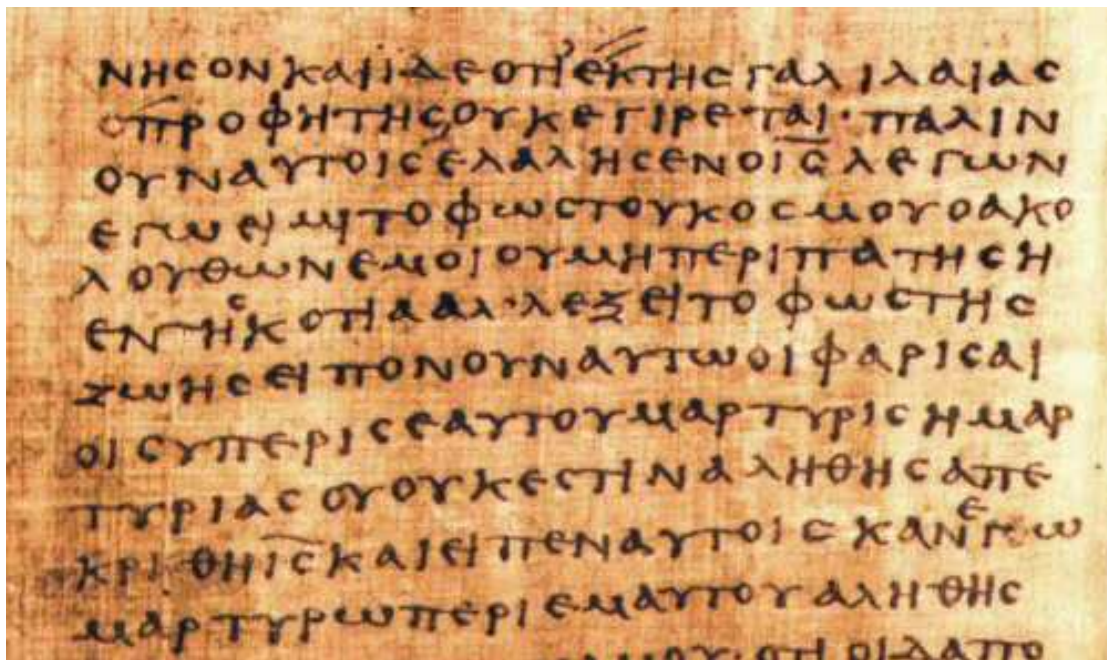 ΝΗϹΟΝΚΑΙΙΔΕΟΤΙΕΚΤΗϹΓΑΛΙΛΑΙΑϹ
ΟΠΡΟΦΗΤΗϹΟΥΚΕΓΙΡΕΤΑΙ·ΠΑΛΙΝ
ΟΥΝΑΥΤΟΙϹΕΛΑΛΗϹΕΝΟΙ̅Ϲ̅ΛΕΓΩΝ
ΕΓΩΕΙΜΙΤΟΦΩϹΤΟΥΚΟϹΜΟΥΟΑΚΟ
ΛΟΥΘΩΝΕΜΟΙΟΥΜΗΠΕΡΙΠΑΤΗϹΗ
ΕΝΤΗϹΚΟΤΙΑΑΛ·ΛΕΞΕΙΤΟΦΩϹΤΗϹ
ΖΩΗϹΕΙΠΟΝΟΥΝΑΥΤΩΟΙΦΑΡΙϹΑΙ
ΟΙϹΥΠΕΡΙϹΕΑΥΤΟΥΜΑΡΤΥΡΙϹΗΜΑΡ
ΤΥΡΙΑϹΟΥΟΥΚΕϹΤΙΝΑΛΗΘΗϹΑΠΕ
ΚΡΙΘΗΙ̅Ϲ̅ΚΑΙΕΙΠΕΝΑΥΤΟΙϹΚΑΝΕΓΩ
ΜΑΡΤΥΡΩΠΕΡΙΕΜΑΥΤΟΥΑΛΗΘΗϹ
ΜΟΥ·ΟΤΙΟΙΔΑΠΟ